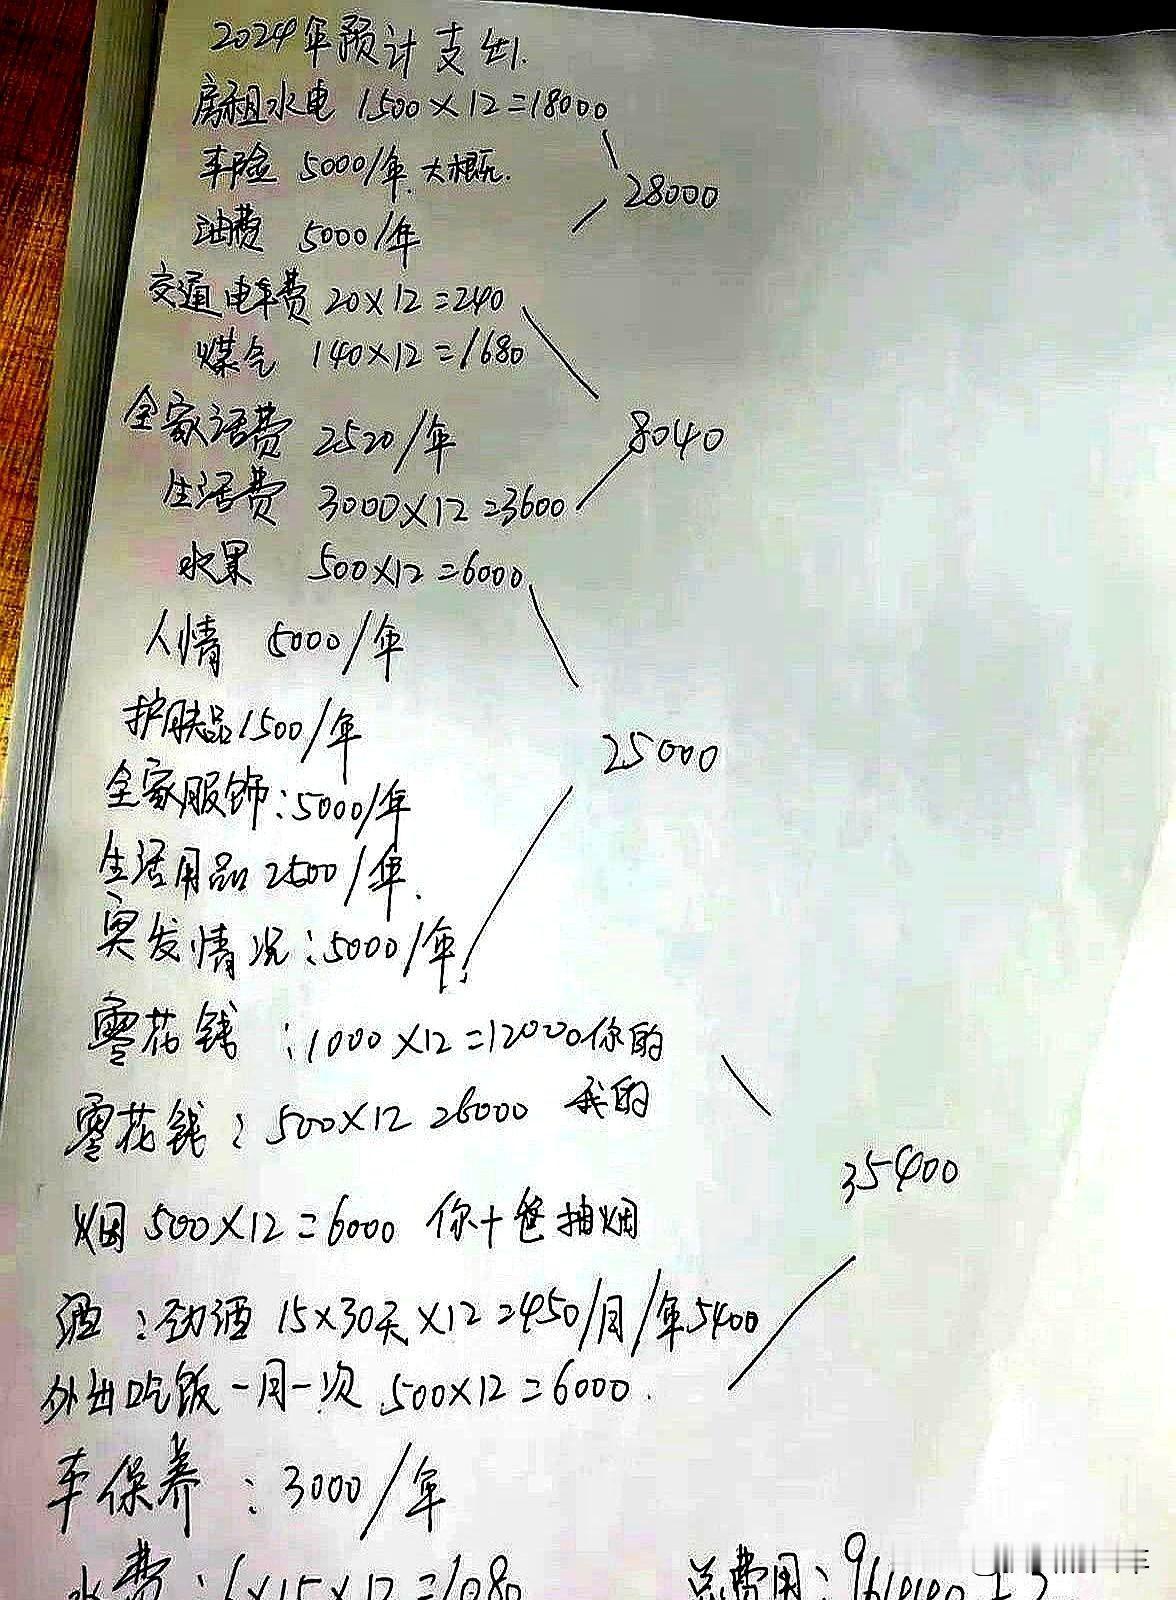 2024年预计支出.
房租水电 1500×12=18000
车险 5000/年.大概.
28000
油费 5000/年
交通电车费 20×12=240
煤气 140×12=1680
全家话费 2520/年
8040
生活费 3000×12=3600
水果 500×12=6000
人情 5000/年
护肤品1500/年
25000
全家服饰:5000/年
生活用品2500/年.
突发情况:5000/年.
零花钱:1000×12=12000你的
零花钱:500×12=6000 我的
35400
烟 500×12=6000 你+爸抽烟
酒:劲酒 15×30天×12=450/月/年5400
外出吃饭一月一次 500×12=6000.
车保养:3000/年
水费:6×15×12=1080
总费用: